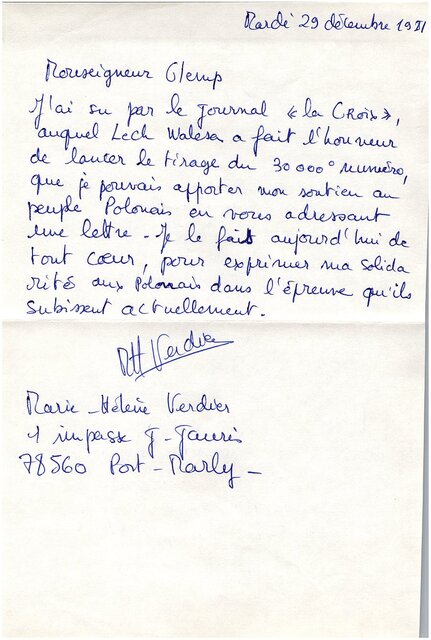 Mardi 29 décembre 1981
Monseigneur Glemp
J'ai su par le journal « la CROIX »,
auquel Lech Walesa a fait l'honneur
de lancer le tirage du 30 000° numéro,
que je pouvais apporter mon soutien au
peuple Polonais en vous adressant
une lettre - Je le fais aujourd'hui de
tout cœur, pour exprimer ma solida
rités aux Polonais dans l'épreuve qu'ils
subissent actuellement.
MH Verdier
Marie-Hélène Verdier
1 impasse J-Jaurès
78560 Port-Marly -